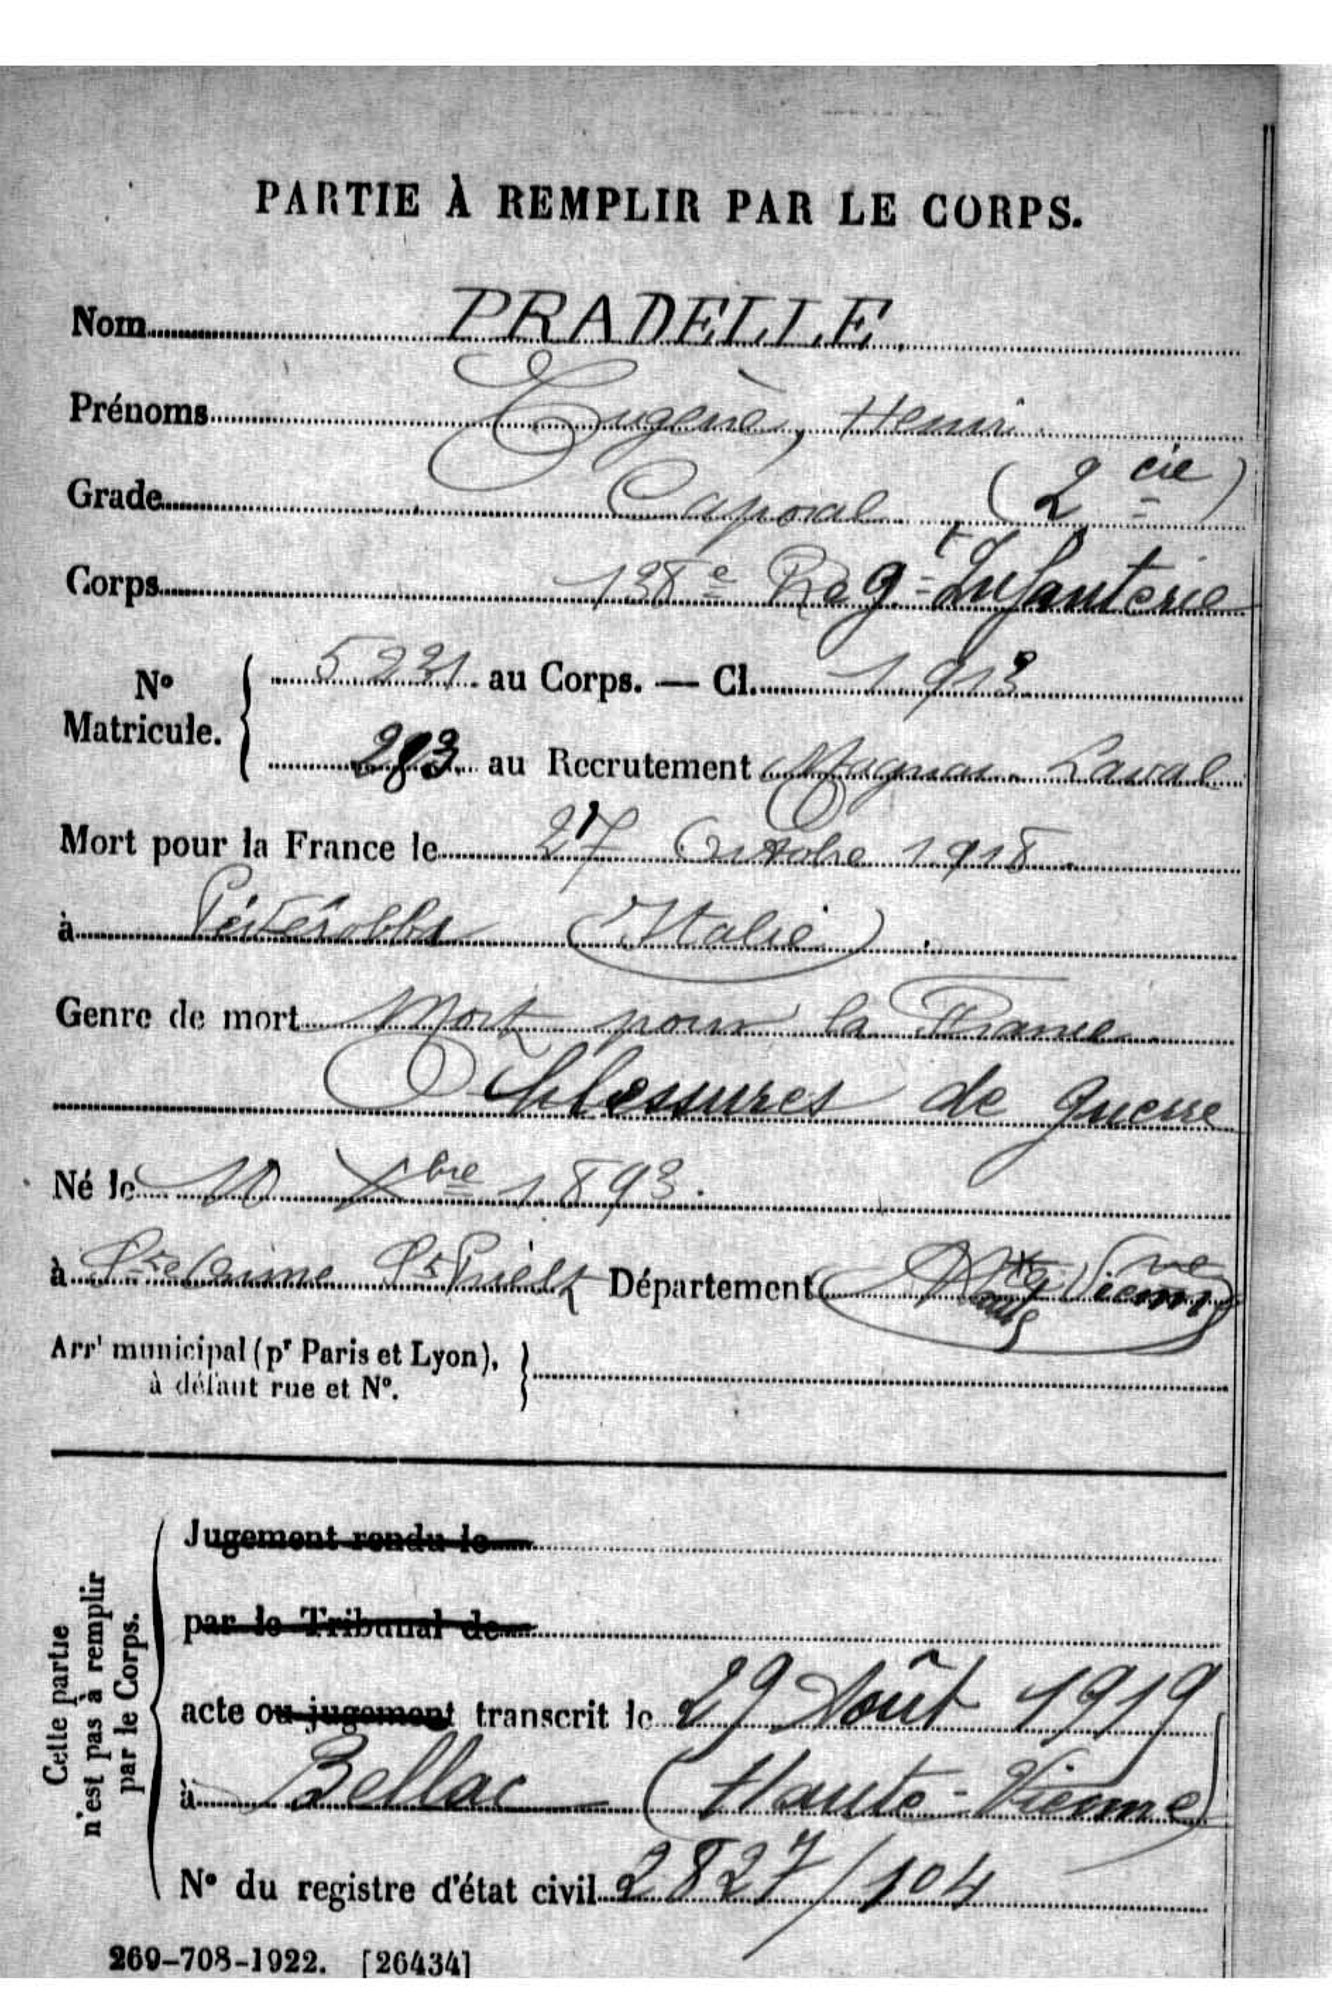 PARTIE À REMPLIR PAR LE CORPS.
Nom PRADELLE
Prénoms Eugène, Henri
Grade Caporal (2 cie)
Corps 138e Régt Infanterie
No Matricule. 5221 au Corps. — Cl. 1913
283 au Recrutement Magnac-Laval
Mort pour la France le 27 Octobre 1918
à (Italie)
Genre de mort Mort pour la France
blessures de guerre
Né le 10 Xbre 1893.
à St Priest Département Hte Vienne
Arrt municipal (pr Paris et Lyon), à défaut rue et No.
Cette partie n'est pas à remplir par le Corps.
Jugement rendu le
par le Tribunal de
acte ou jugement transcrit le 29 Août 1919
à Bellac (Haute-Vienne)
No du registre d'état civil 2827/104
269-708-1922. [26434]